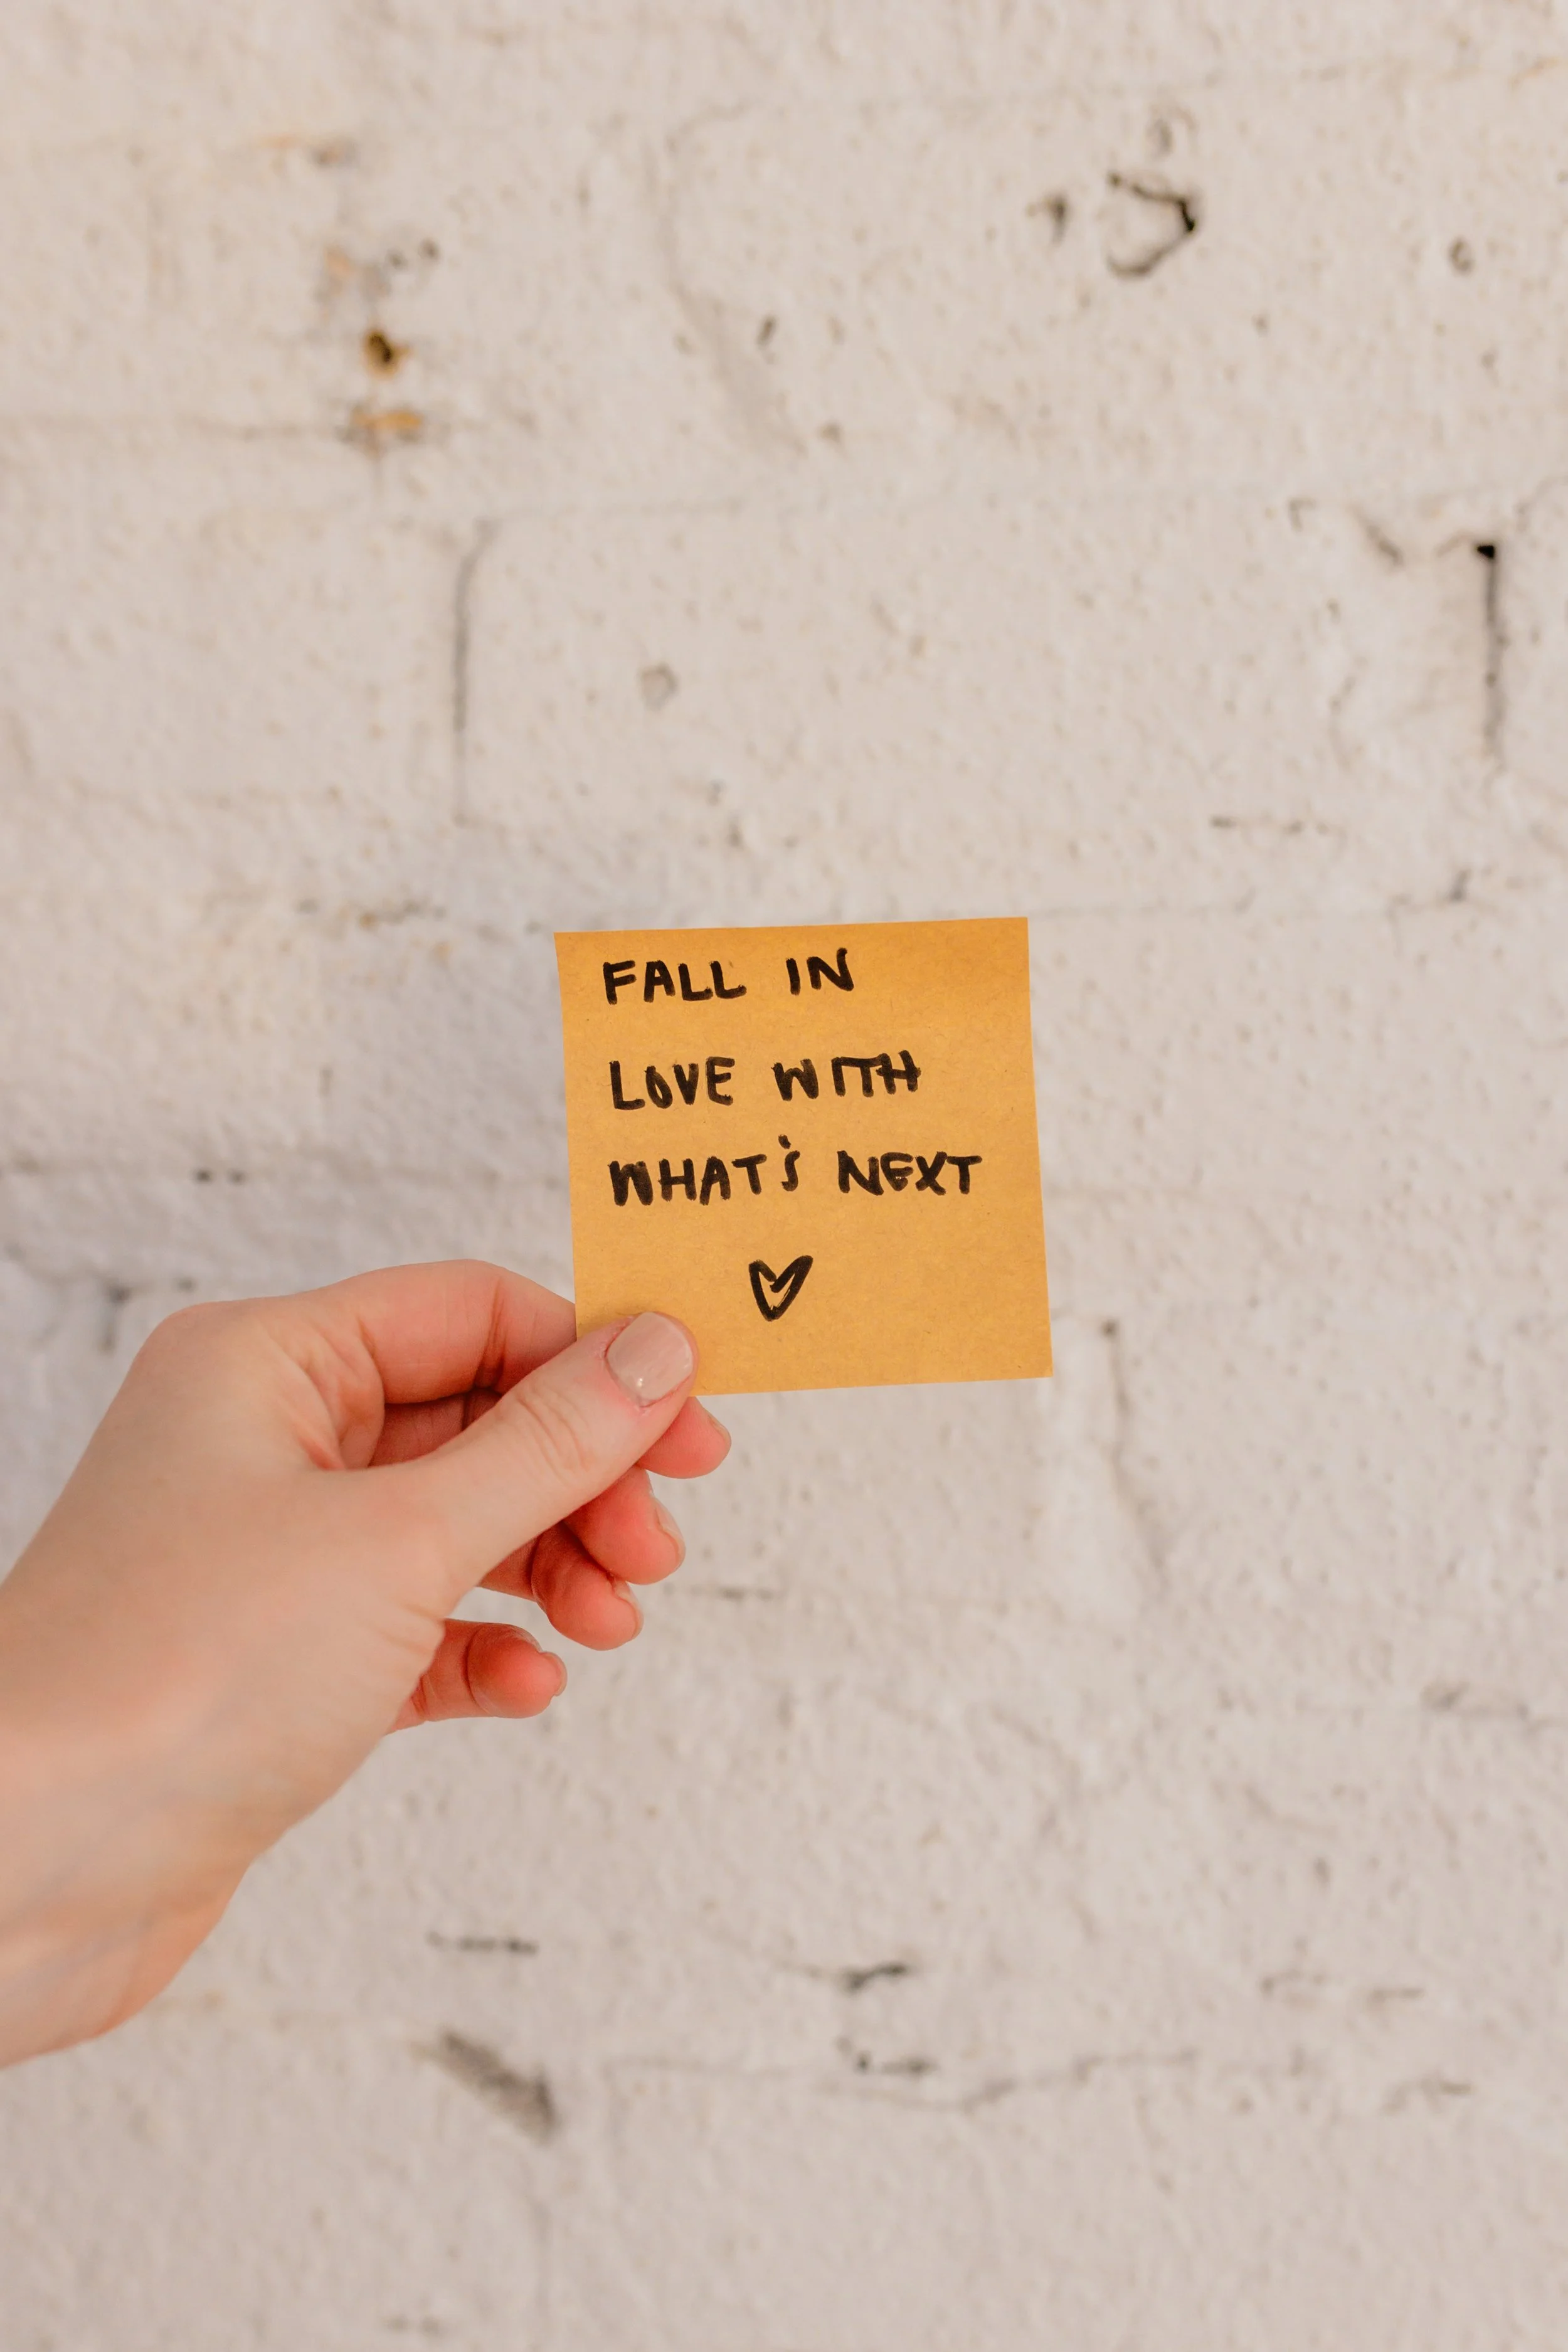 FALL IN
LOVE WITH
WHAT'S NEXT